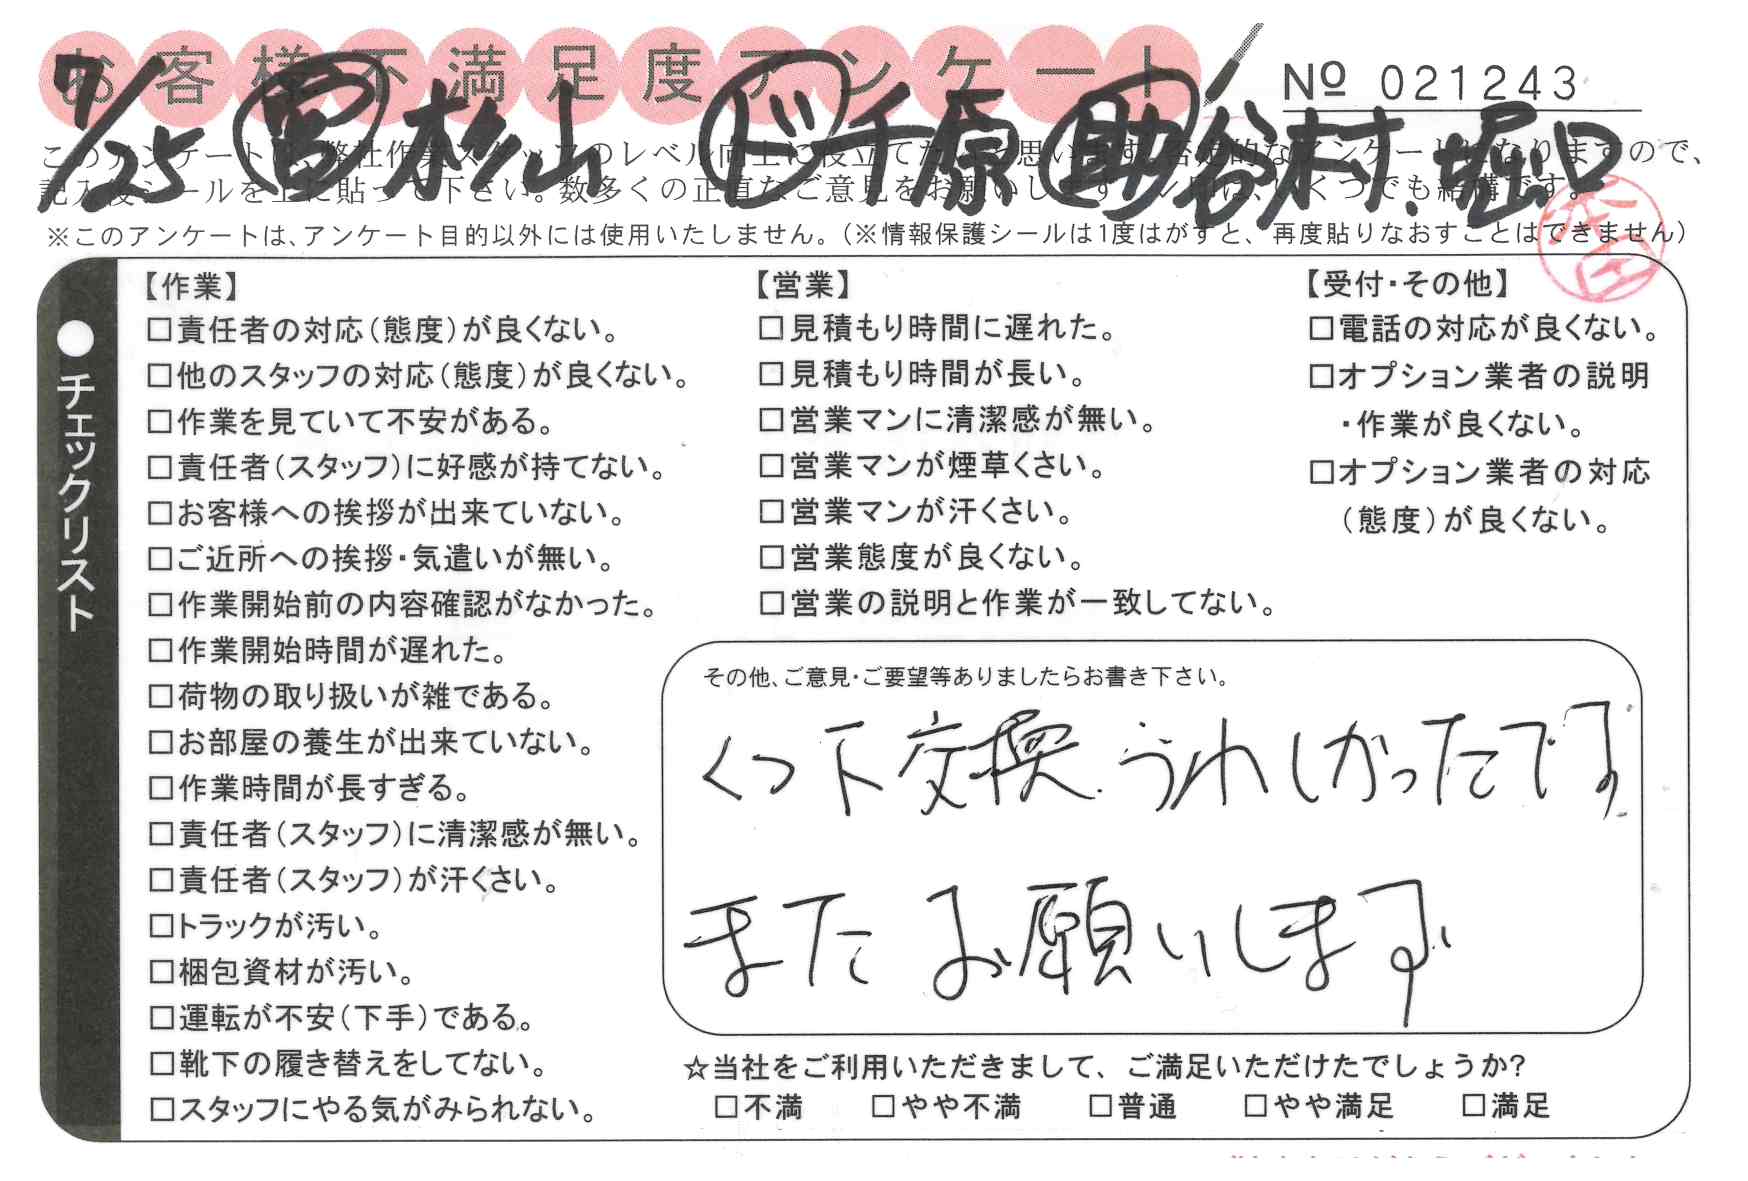 お客様不満足度アンケート
No 021243
7/25 営 杉山 ド 千原 助 谷村.堀口
このアンケートは、弊社作業スタッフのレベル向上に役立てたいと思います。否定的なアンケートになりますので、
記入後シールを上に貼って下さい。数多くの正直なご意見をお願いします。シールは、いくつでも結構です。
※このアンケートは、アンケート目的以外には使用いたしません。（※情報保護シールは1度はがすと、再度貼りなおすことはできません）
●チェックリスト
【作業】
□責任者の対応（態度）が良くない。
□他のスタッフの対応（態度）が良くない。
□作業を見ていて不安がある。
□責任者（スタッフ）に好感が持てない。
□お客様への挨拶が出来ていない。
□ご近所への挨拶・気遣いが無い。
□作業開始前の内容確認がなかった。
□作業開始時間が遅れた。
□荷物の取り扱いが雑である。
□お部屋の養生が出来ていない。
□作業時間が長すぎる。
□責任者（スタッフ）に清潔感が無い。
□責任者（スタッフ）が汗くさい。
□トラックが汚い。
□梱包資材が汚い。
□運転が不安（下手）である。
□靴下の履き替えをしてない。
□スタッフにやる気がみられない。
【営業】
□見積もり時間に遅れた。
□見積もり時間が長い。
□営業マンに清潔感が無い。
□営業マンが煙草くさい。
□営業マンが汗くさい。
□営業態度が良くない。
□営業の説明と作業が一致してない。
【受付・その他】
□電話の対応が良くない。
□オプション業者の説明
・作業が良くない。
□オプション業者の対応
（態度）が良くない。
その他、ご意見・ご要望等ありましたらお書き下さい。
くつ下交換.うれしかったです
またお願いします
☆当社をご利用いただきまして、ご満足いただけたでしょうか?
□不満 □やや不満 □普通 □やや満足 □満足